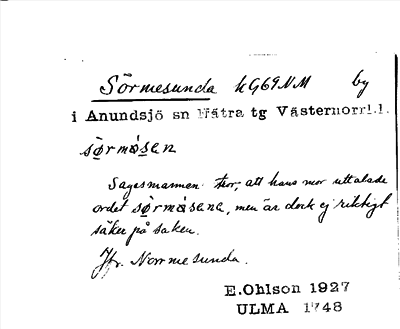 Sörmesunda kG69NM by
i Anundsjö sn Nätra tg Västernorrl.l.
sörmósen
Sagesmannen tror, att hans mor uttalade
ordet sörmósene, men är dock ej riktigt
säker på saken.
Jfr. Norrmesunda.
E.Ohlson 1927
ULMA 1748